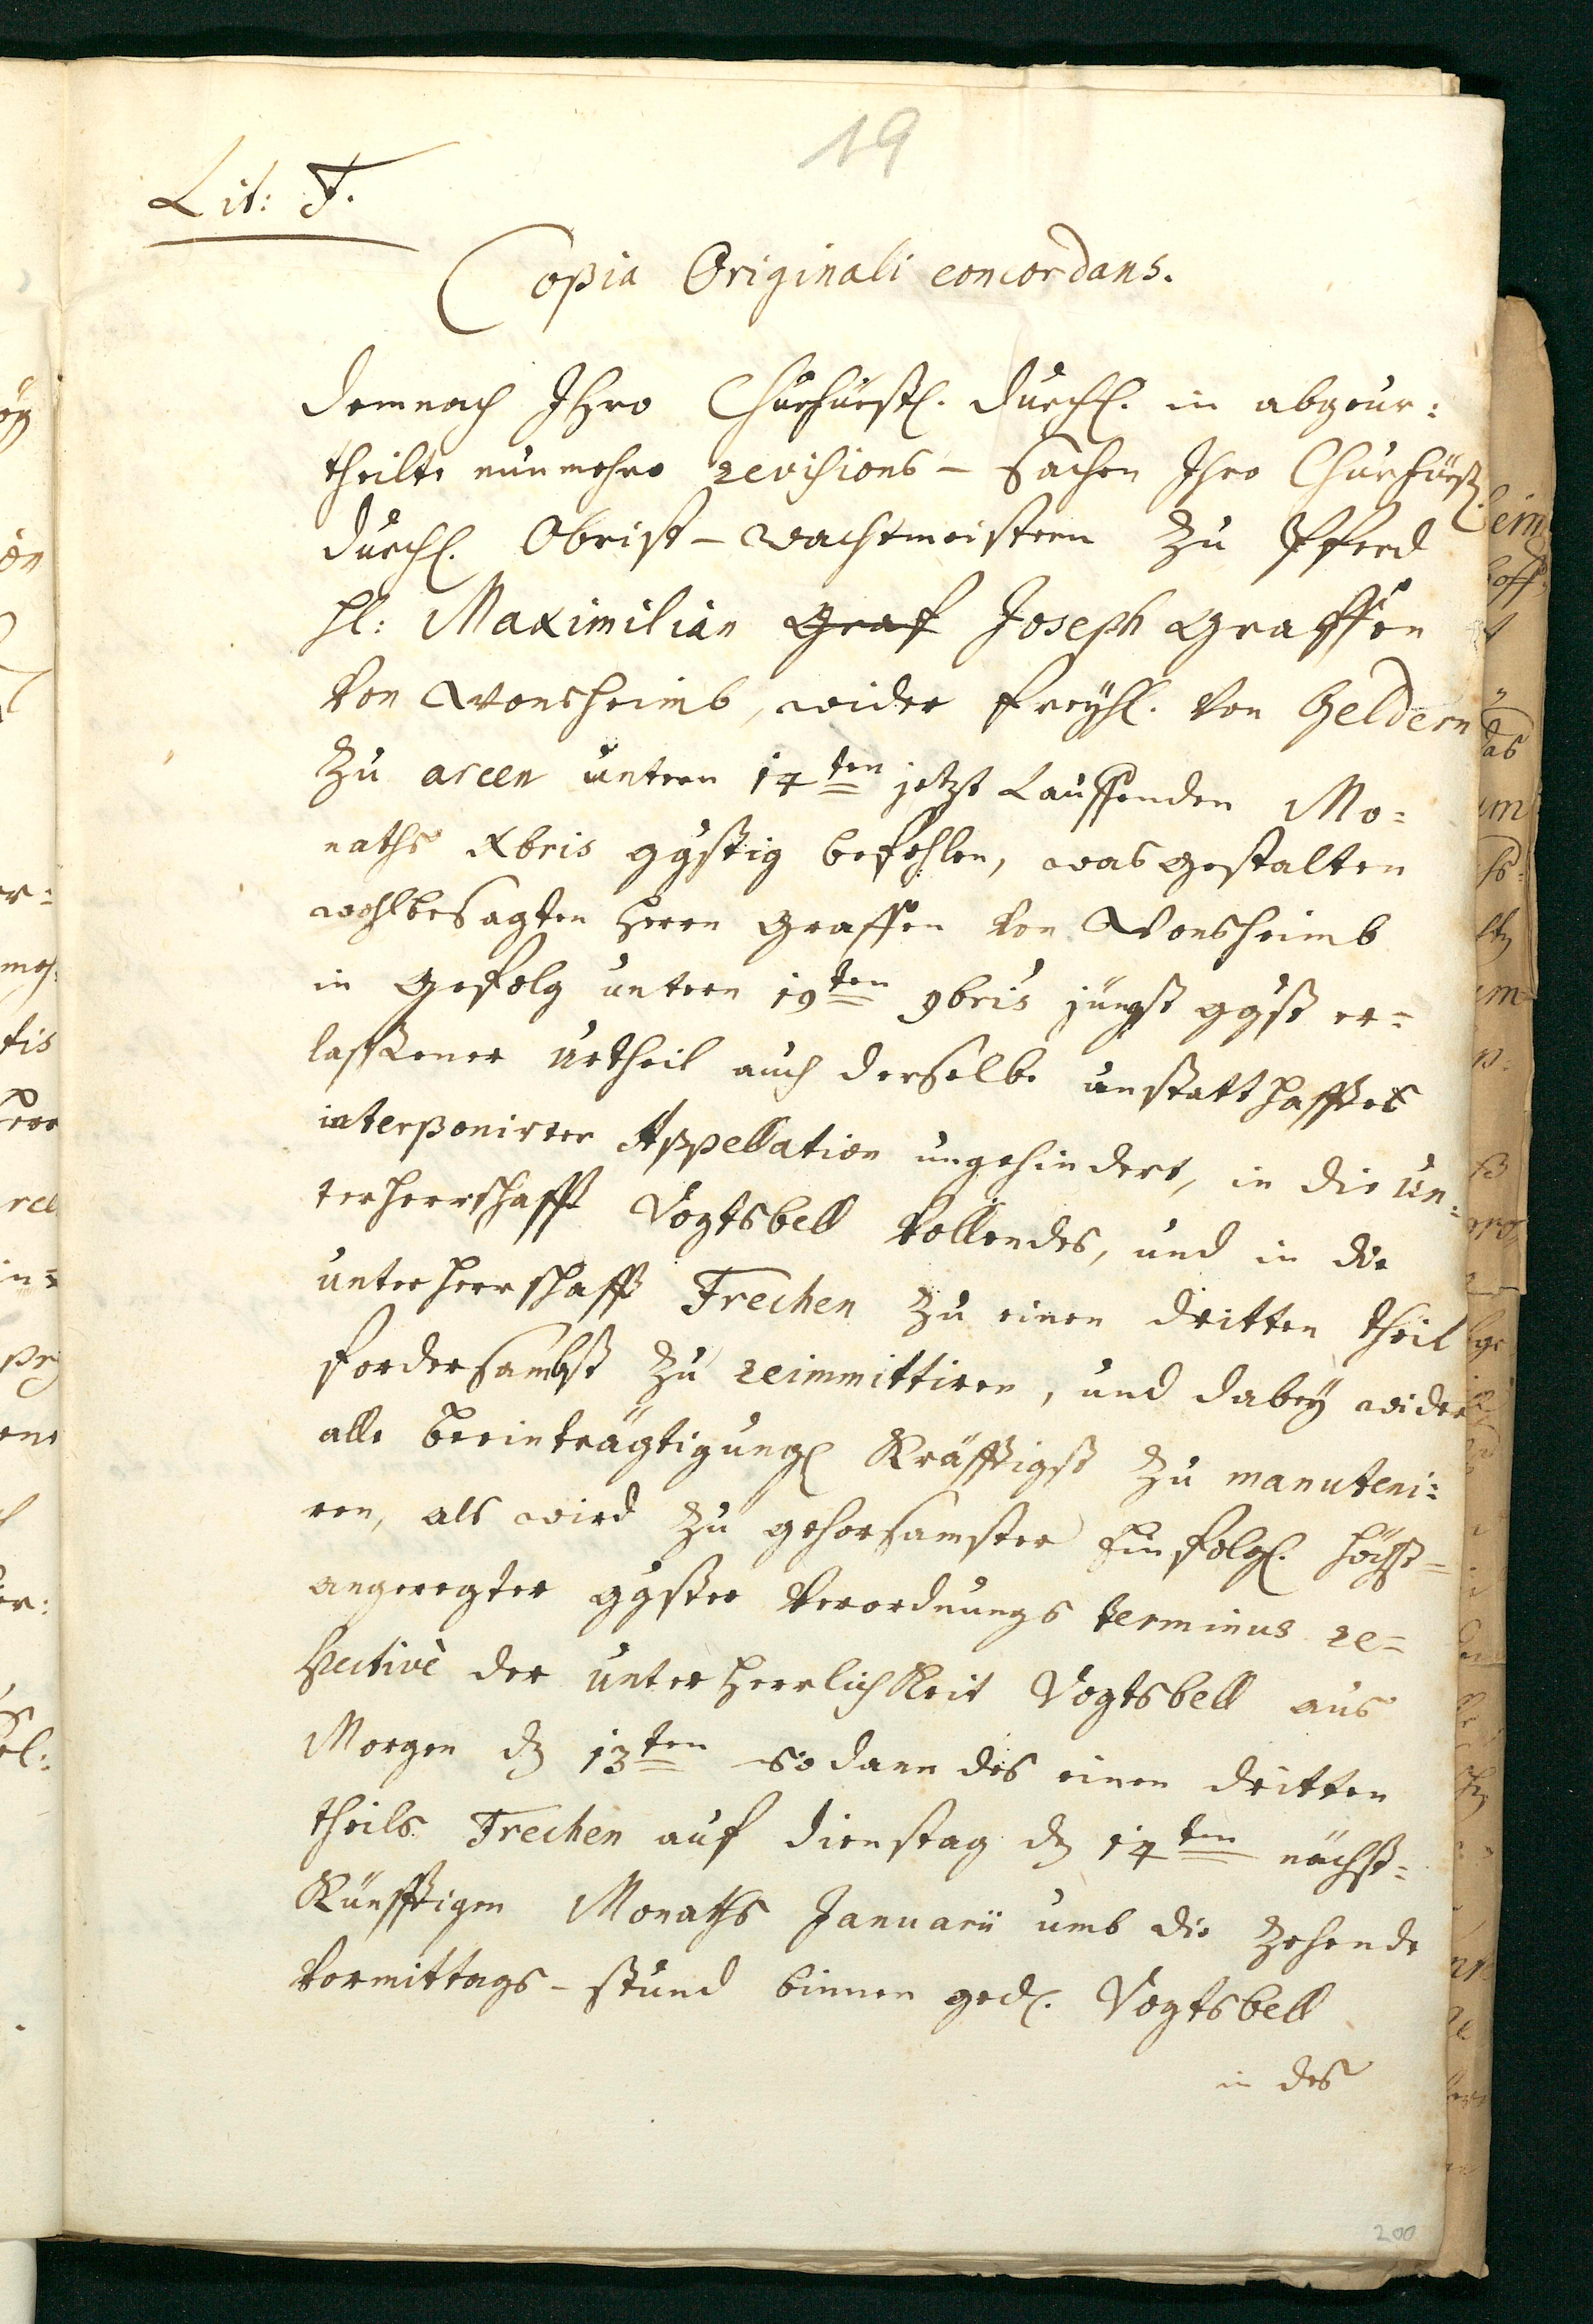 19
Lit: F.
Copia Originali concordans.
Demnach Ihro Churfürstl. Durchl. in abgeur:
theilte nunmehro revisions - sachen Ihro Churfürstl.
Durchl. Obrist-wachtmeistern zu Pferd
Hl: Maximilian Graf Joseph Graffen
von Wonsheimb, wider Freyhl. von Geldern
zu arcen untern 14ten jetzt Lauffenden Mo=
naths Xbris ggstig befehlen, was gestalten
wohlbesagten Herrn Graffen von Wonsheimb
in Gefolg untern 19ten 9bris jüngst ggst er=
lassener Urtheil auch derselbe unstatthafftes
interponirter Appellation ungehindert, in die Un:
terherrschafft Vogtsbell vollendes, und in die
unterherrschafft Frechen zu einen dritten theil
fordersambst zu reimmittiren, und dabey wider
alle beeinträgtigung kräfftigst zu manuteni:
ren, als wird zu gehorsamster Einfolg. höchst=
angeregter ggster Verordnungs terminus re=
spective der unterherrlichkeit Vogtsbell aus
Morgen d 13ten sodann des einen dritten
theils Frechen auf dienstag d 14ten nächst=
künfftigen Monaths Januarii umb die zehende
vormittags-stund binnen ged. Vogtsbell
in des
200